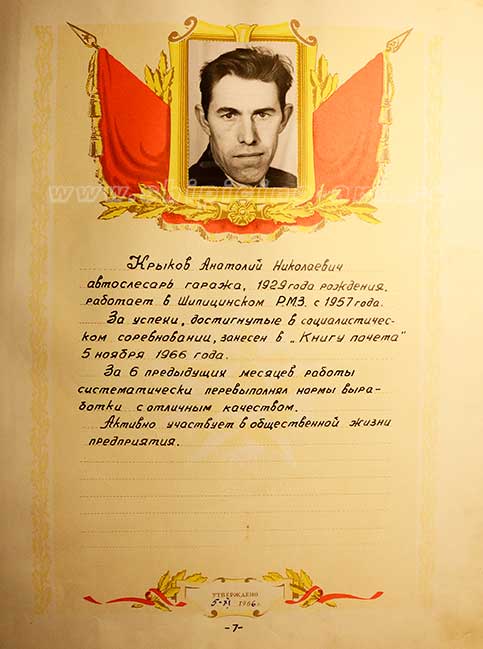 Крыков Анатолий Николаевич
автослесарь гаража, 1929 года рождения.
работает в Шипицинском РМЗ. с 1957 года.
За успехи, достигнутые в социалистичес-
ком соревновании, занесен в „Книгу почета"
5 ноября 1966 года.
За 6 предыдущих месяцев работы
систематически перевыполнял нормы выра-
ботки с отличным качеством.
Активно участвует в общественной жизни
предприятия.
УТВЕРЖДЕНО
5-XI 1966г.
-7-